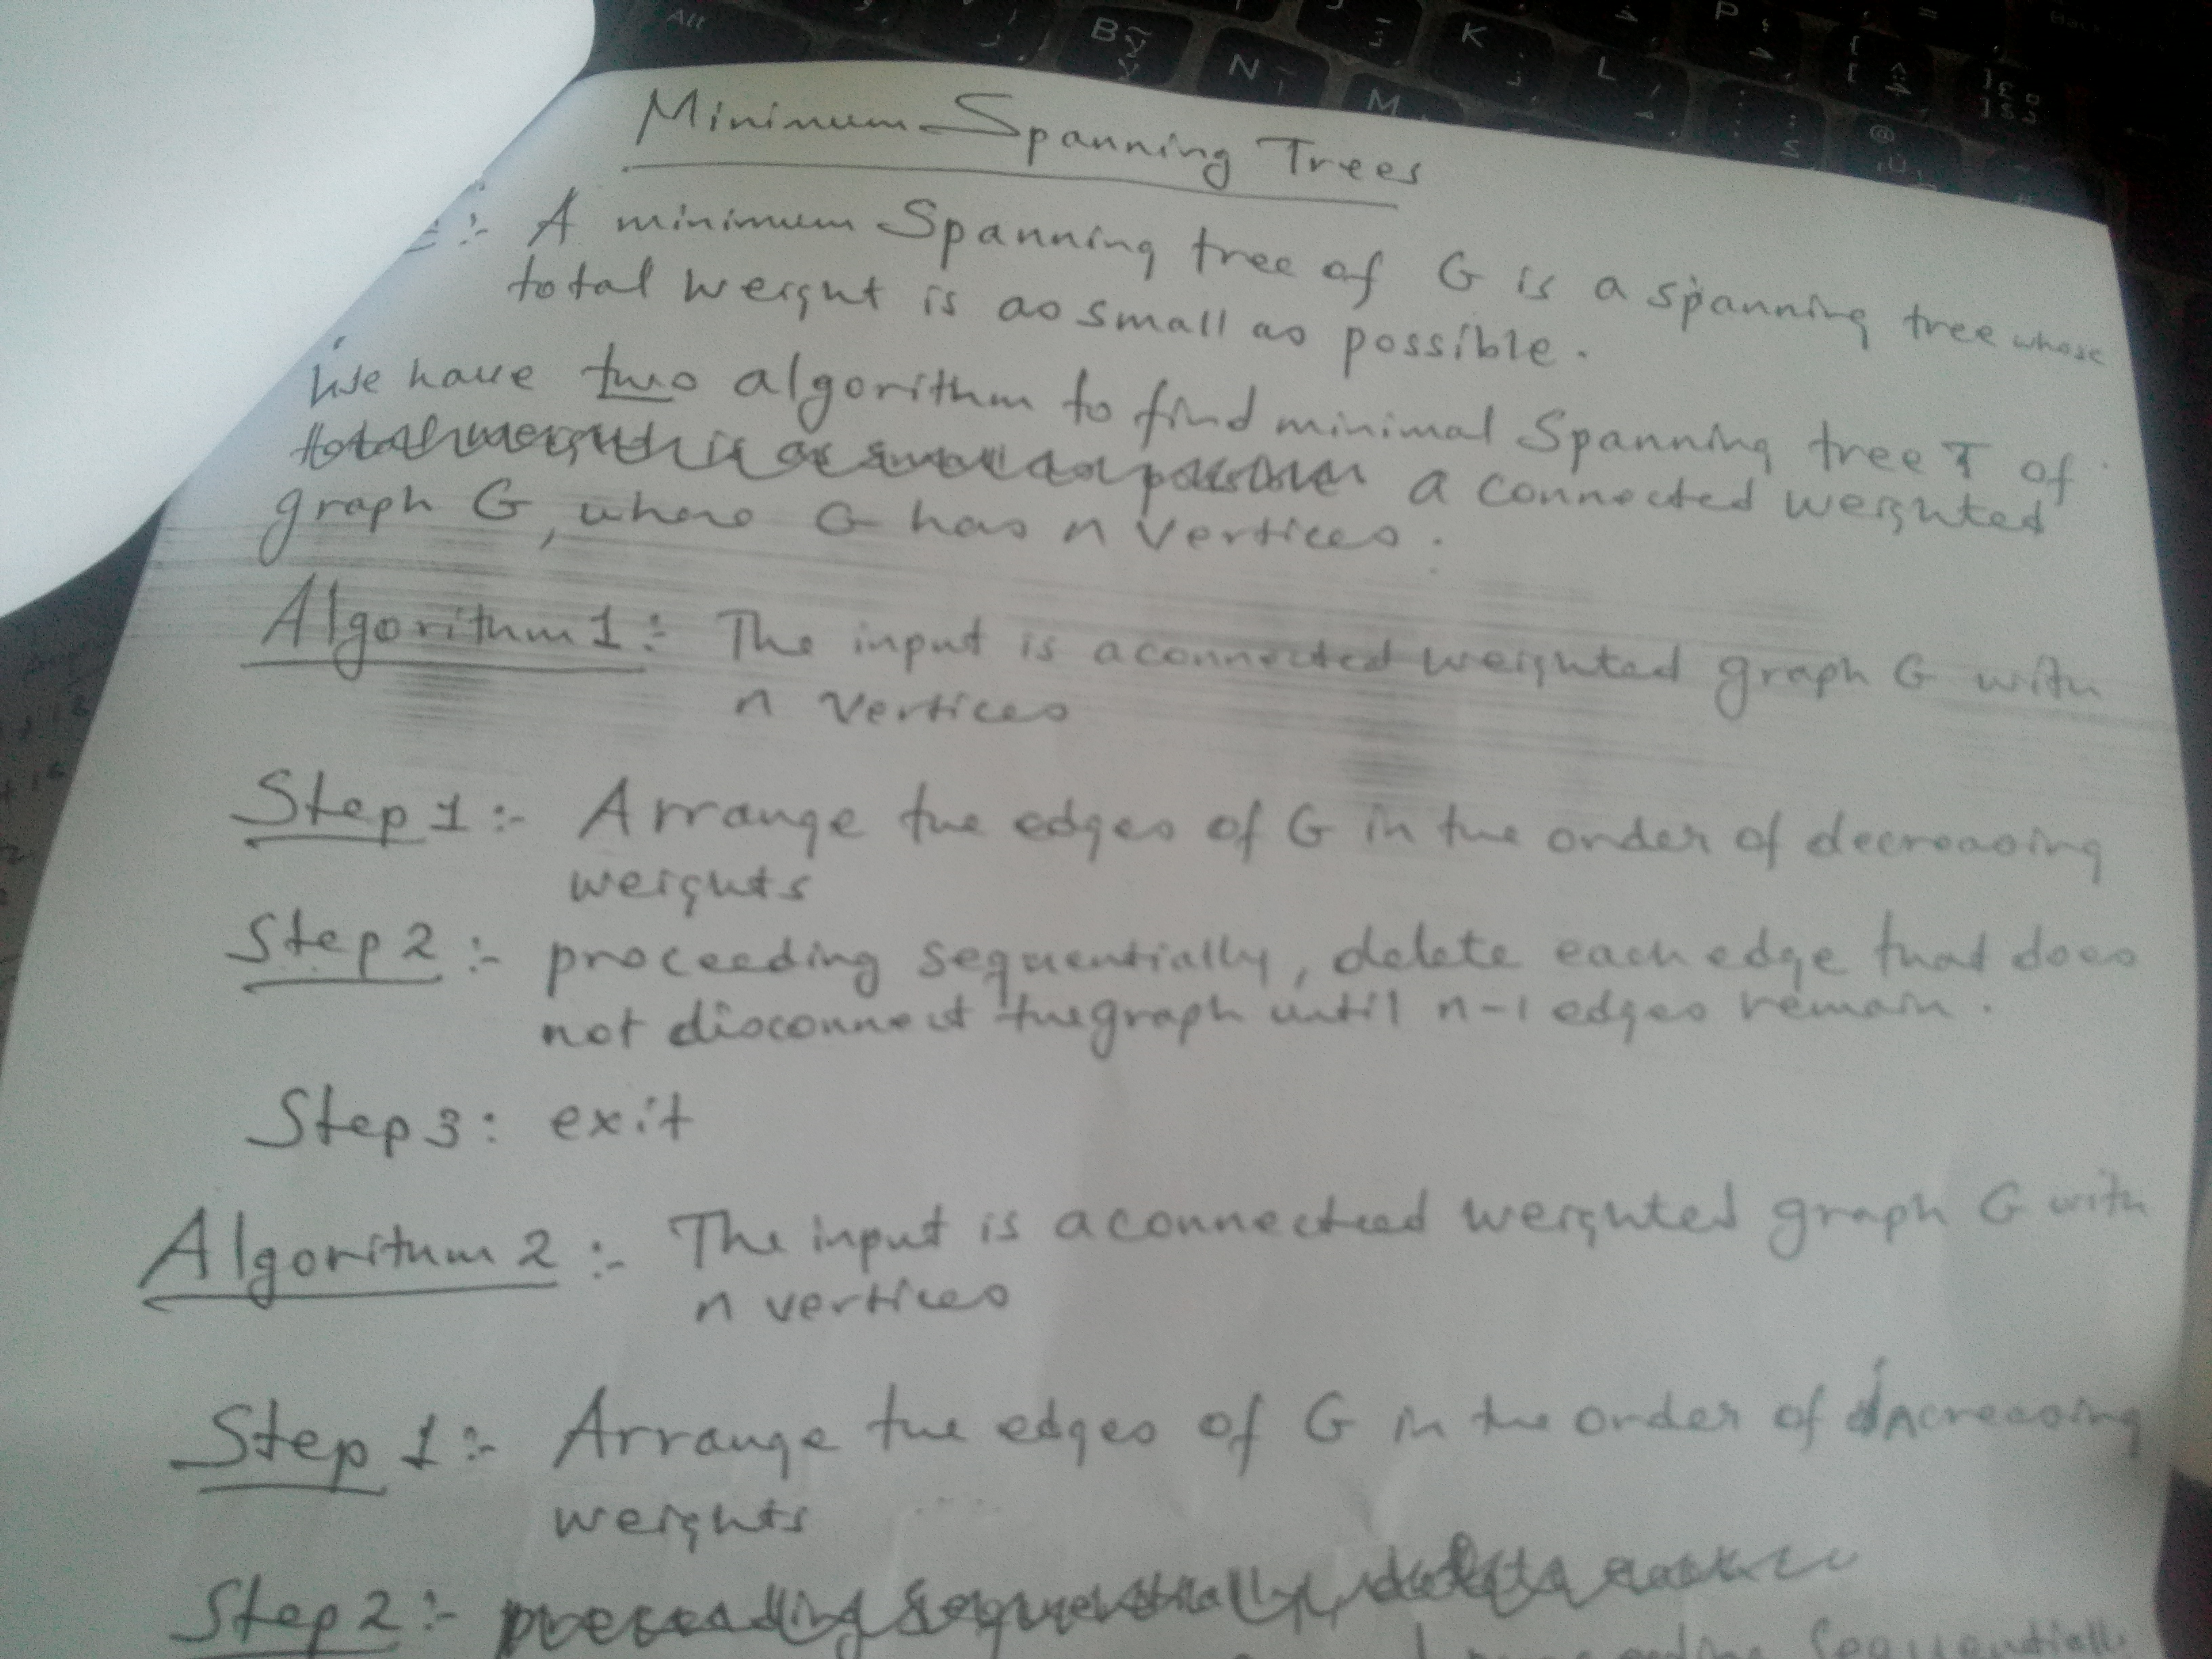 Alt
B
N
M
K
L
P
Minimum Spanning Trees
:- A minimum Spanning tree of G is a spanning tree whose
total weight is as small as possible.
We have two algorithm to find minimal Spanning tree T of
total weight is as small as possible a connected weighted
graph G, where G has n vertices.
Algorithm 1:- The input is a connected weighted graph G with
n vertices
Step 1:- Arrange the edges of G in the order of decreasing
weights
Step 2:- proceeding sequentially, delete each edge that does
not disconnect the graph until n-1 edges remain.
Step 3: exit
Algorithm 2:- The input is a connected weighted graph G with
n vertices
Step 1:- Arrange the edges of G in the order of increasing
weights
Step 2:- proceeding sequentially, delete each
proceeding Sequentially